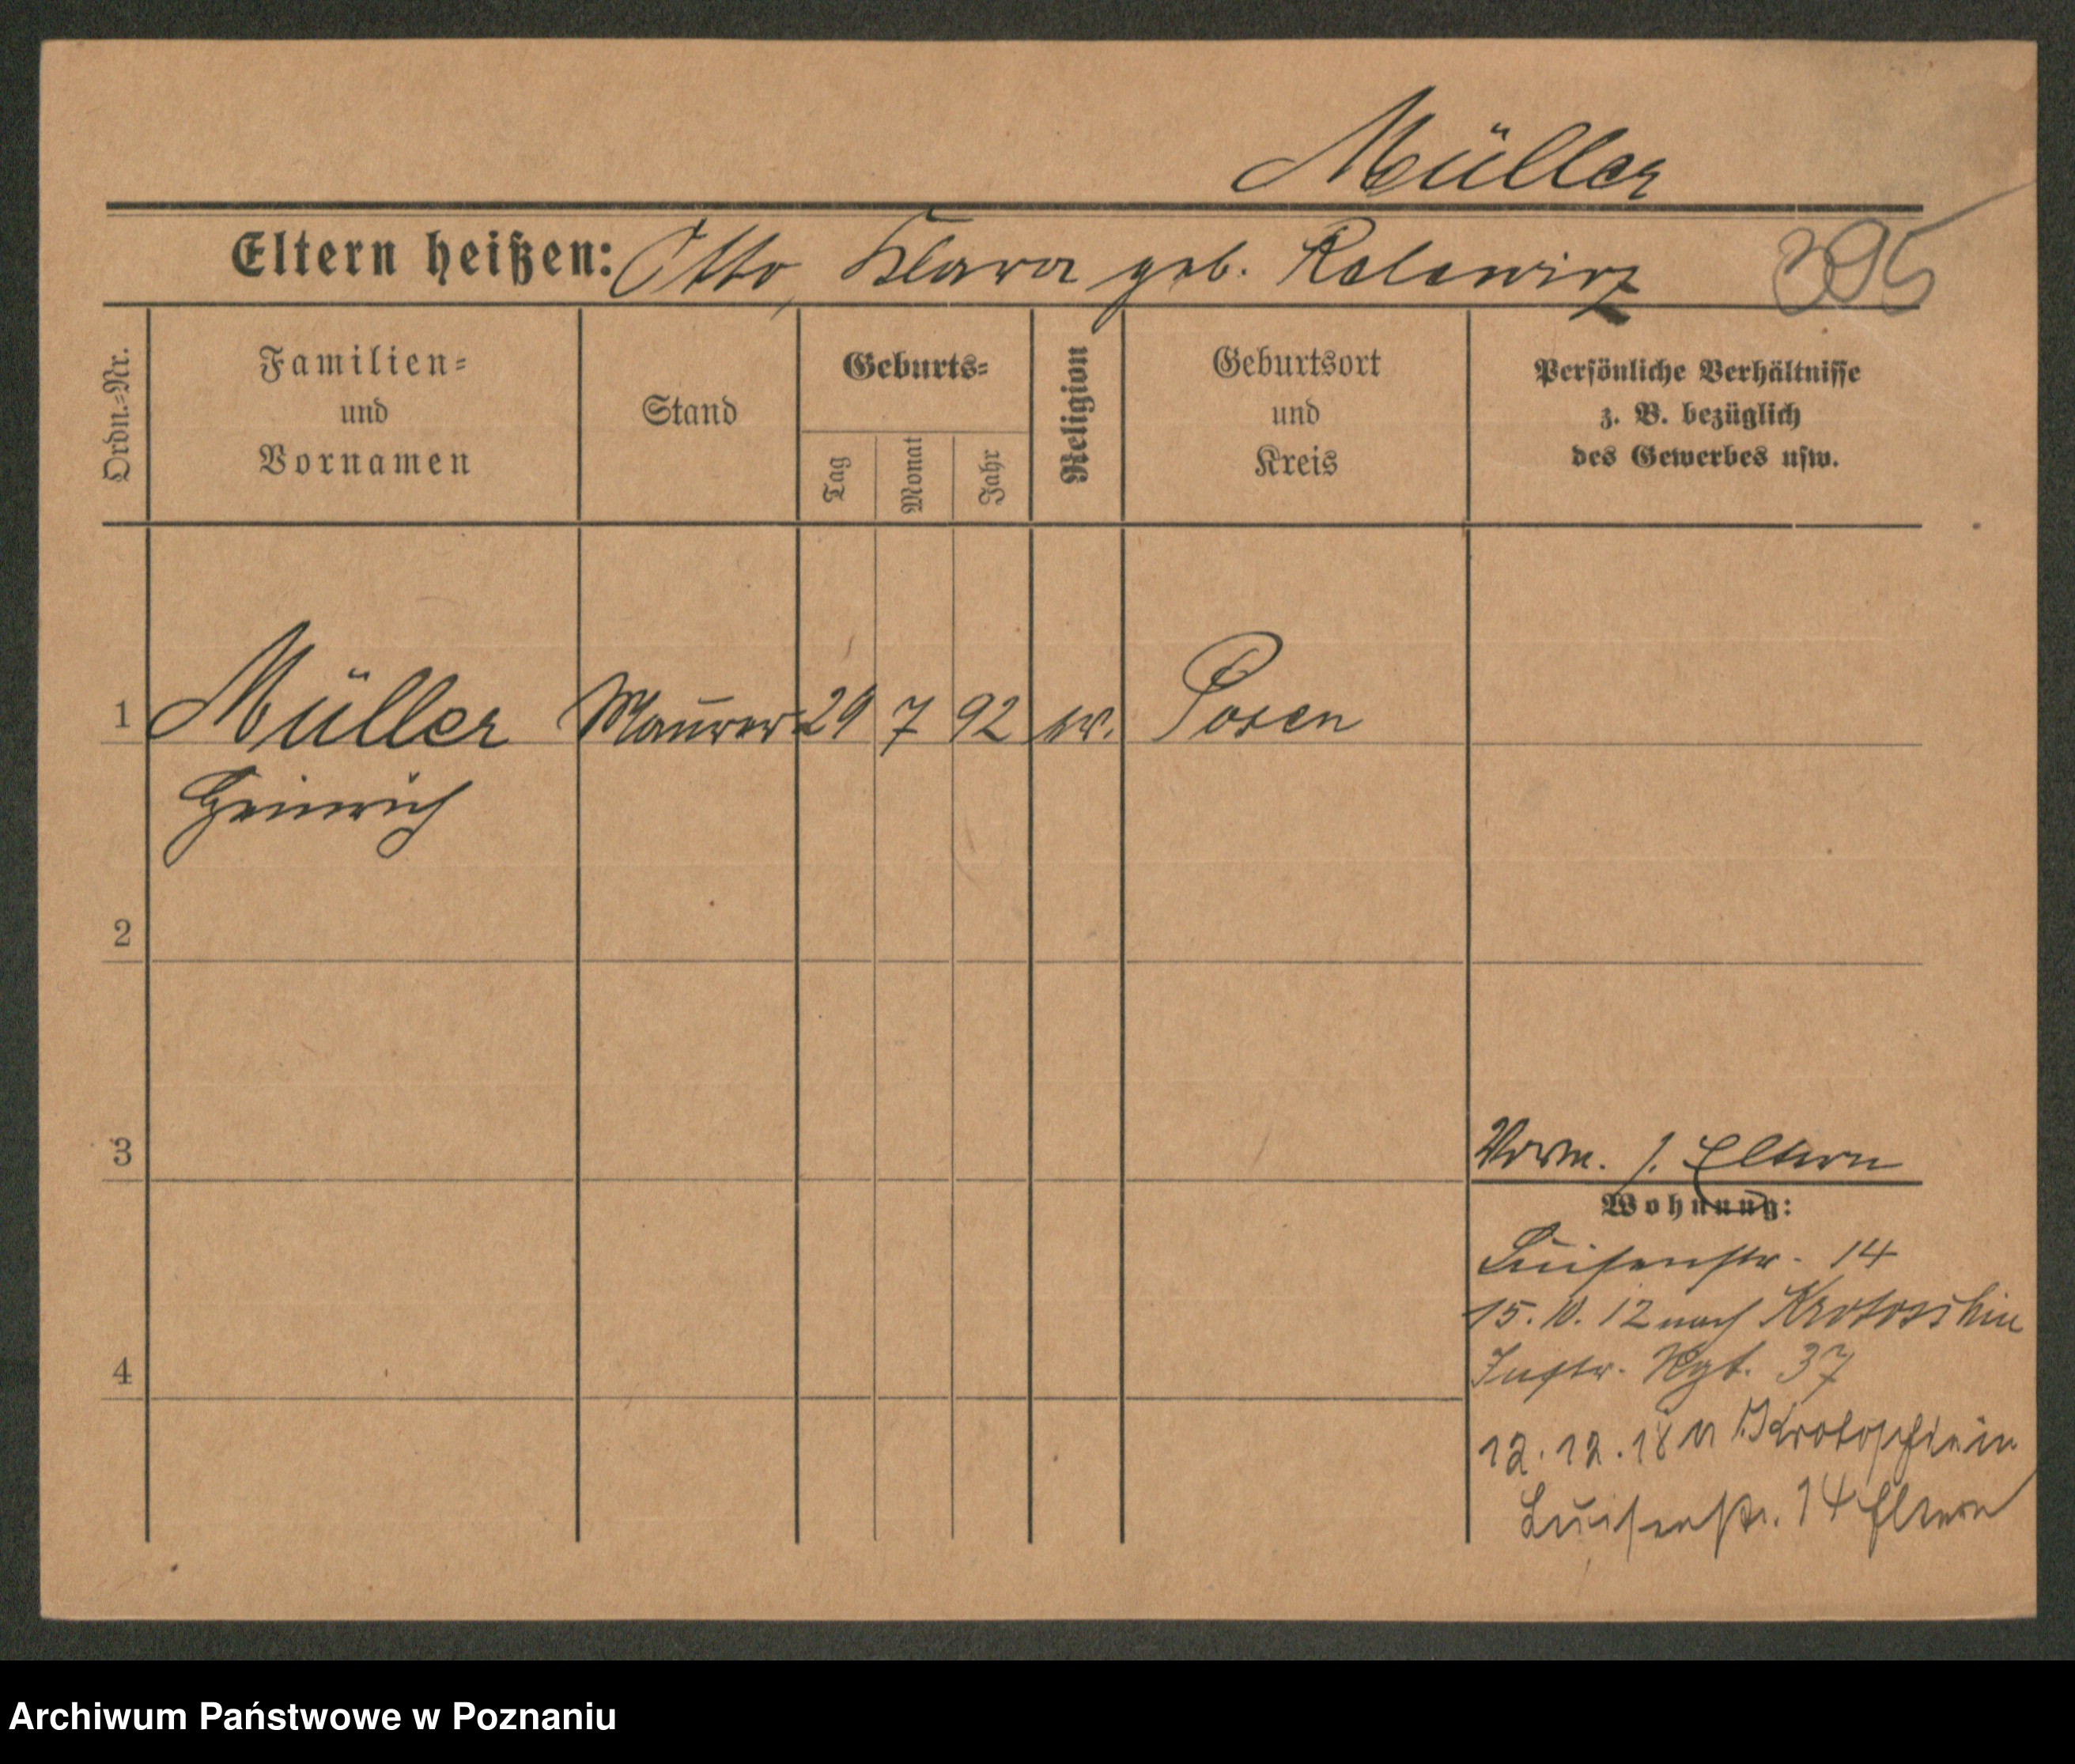 Müller
Eltern heißen: Otto, Klara geb. Ralewicz
395
Ordn.-Nr.
Familien- und Vornamen
Stand
Geburts-
Tag
Monat
Jahr
Religion
Geburtsort und Kreis
Persönliche Verhältnisse
z. B. bezüglich
des Gewerbes usw.
1 Müller Maurer 29 7 92 ev. Posen
Heinrich
2
3
Vorm. s. Eltern
Wohnung:
Luisenstr. 14
15.10.12 nach Krotoschin
4
Inftr. Rgt. 37
12.12.18 v Krotoschin
Luisenstr. 14 Eltern
Archiwum Państwowe w Poznaniu